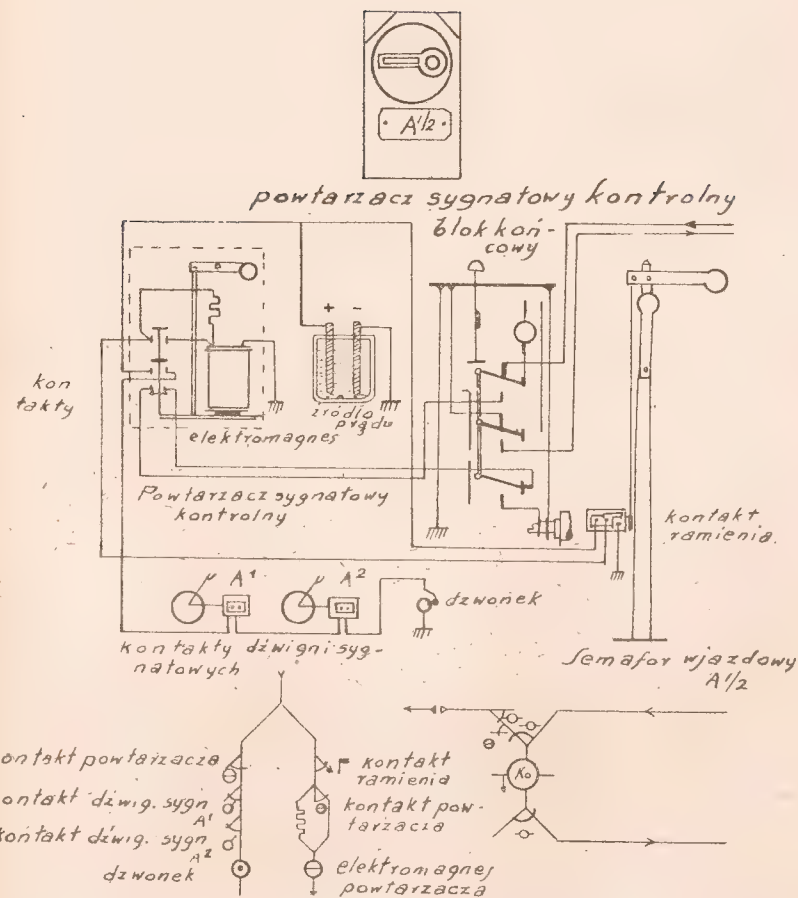 A1/2
powtarzacz sygnałowy kontrolny
blok koń-
cowy
+ -
kon
takty
źródło
prądu
elektromagnes
Powtarzacz sygnałowy
kontrolny
kontakt
ramienia
A1
A2
dzwonek
kontakty dźwigni syg-
nałowych
Semafor wjazdowy
A1/2
kontakt powtarzacza
kontakt dźwig. sygn
A1
kontakt dźwig. sygn
A2
dzwonek
kontakt
ramienia
kontakt pow-
tarzacza
elektromagnes
powtarzacza
Ko